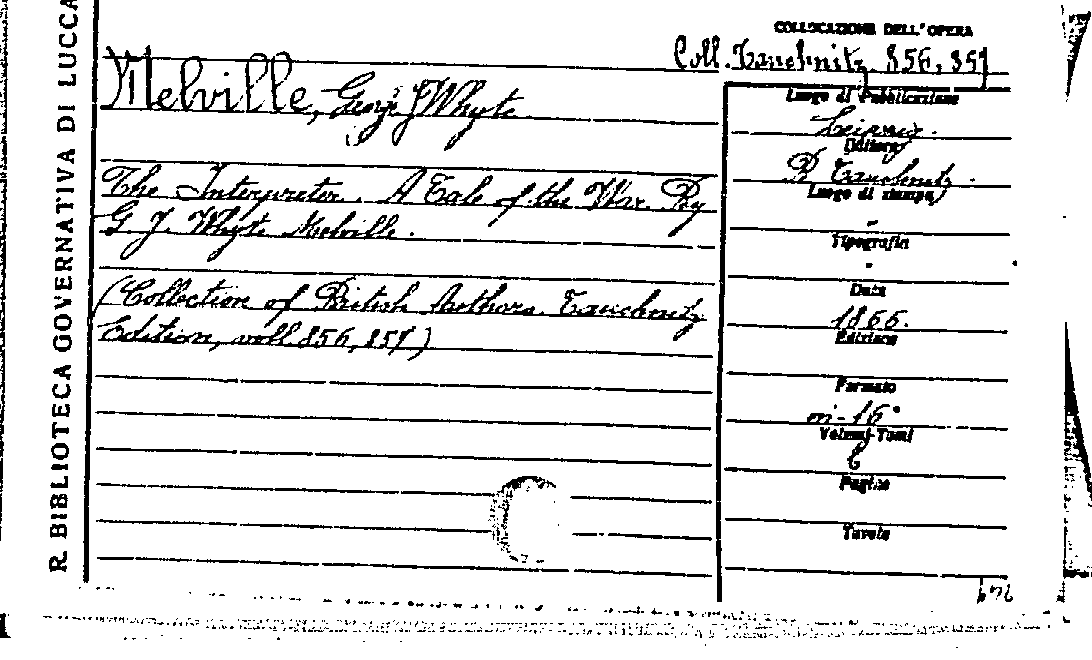 R. BIBLIOTECA GOVERNATIVA DI LUCCA
COLLOCAZIONE DELL'OPERA
Coll. Tauchnitz 856, 857
Melville, George J Whyte
The Interpreter. A Tale of the War. By
G. J. Whyte Melville.
(Collection of British Authors. Tauchnitz
Edition, voll 856, 857)
Luogo di Pubblicazione
Leipzig.
Editore
B. Tauchnitz.
Luogo di stampa
-
Tipografia
-
Data
1866.
Edizione
Formato
in-16°
Volumi-Tomi
Pagine
Tavole